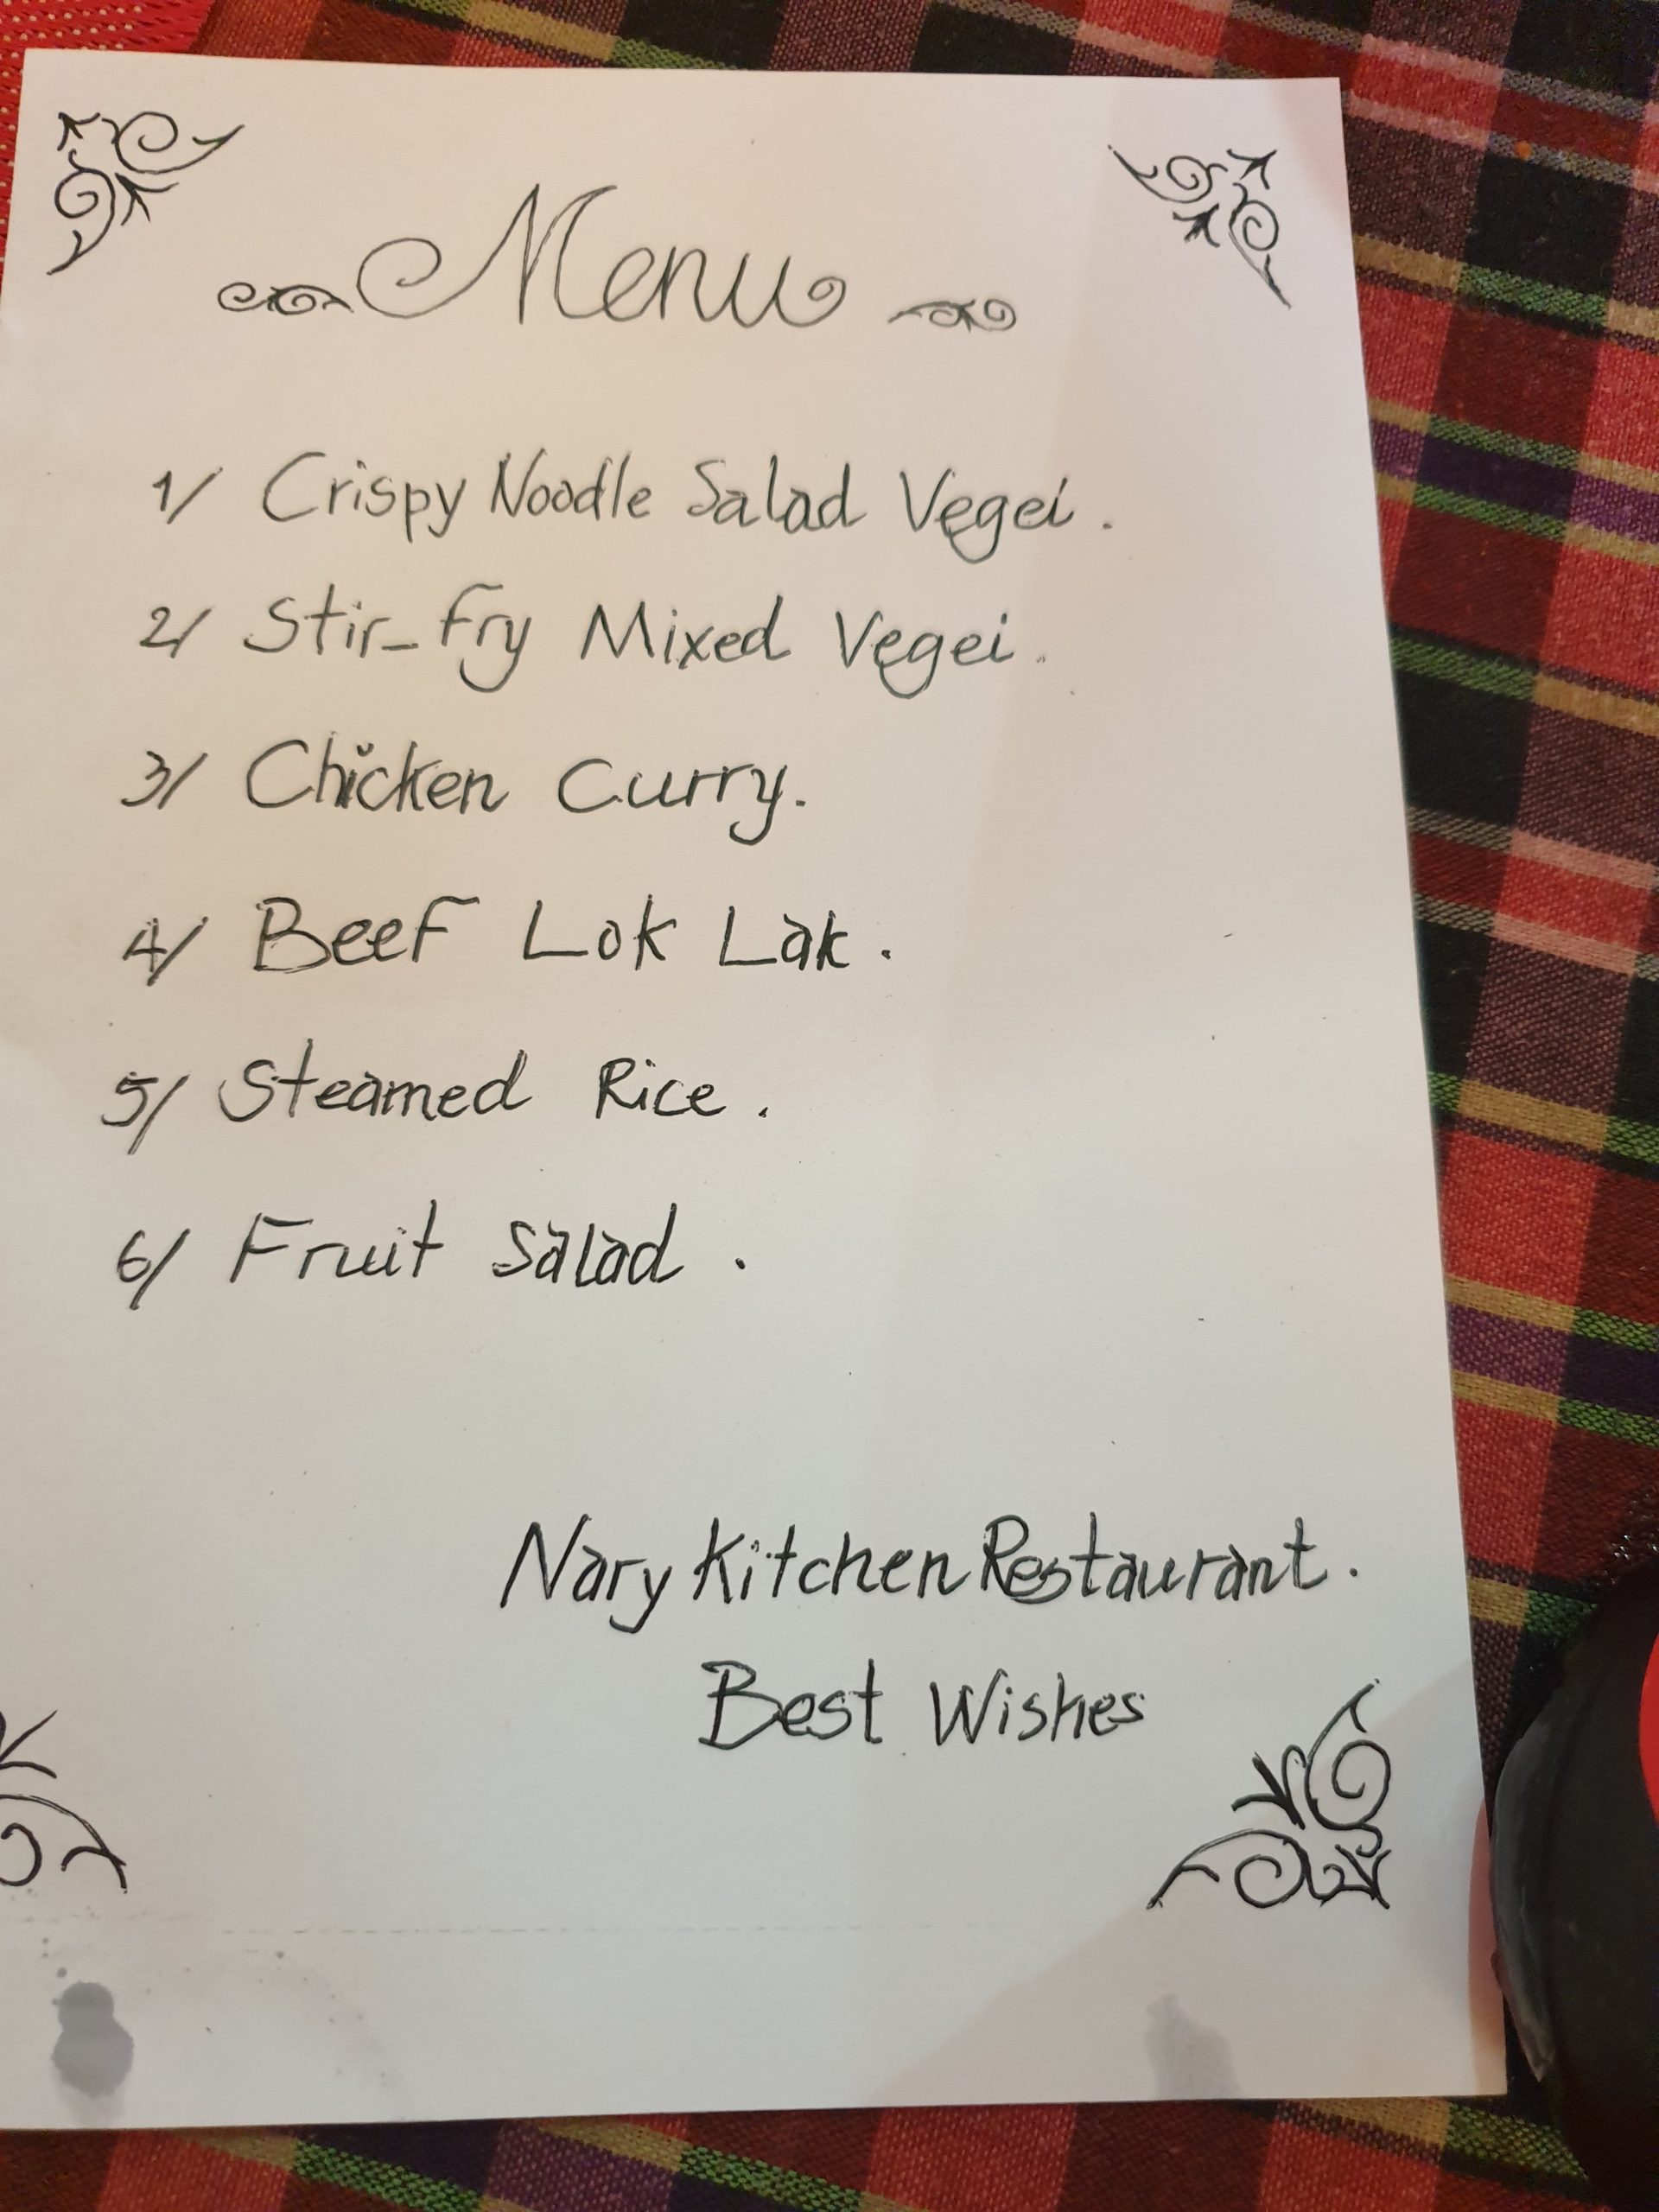 Menu
1/ Crispy Noodle Salad Vegei.
2/ Stir-Fry Mixed Vegei.
3/ Chicken Curry.
4/ Beef Lok Lak.
5/ Steamed Rice.
6/ Fruit Salad.
Nary Kitchen Restaurant.
Best Wishes